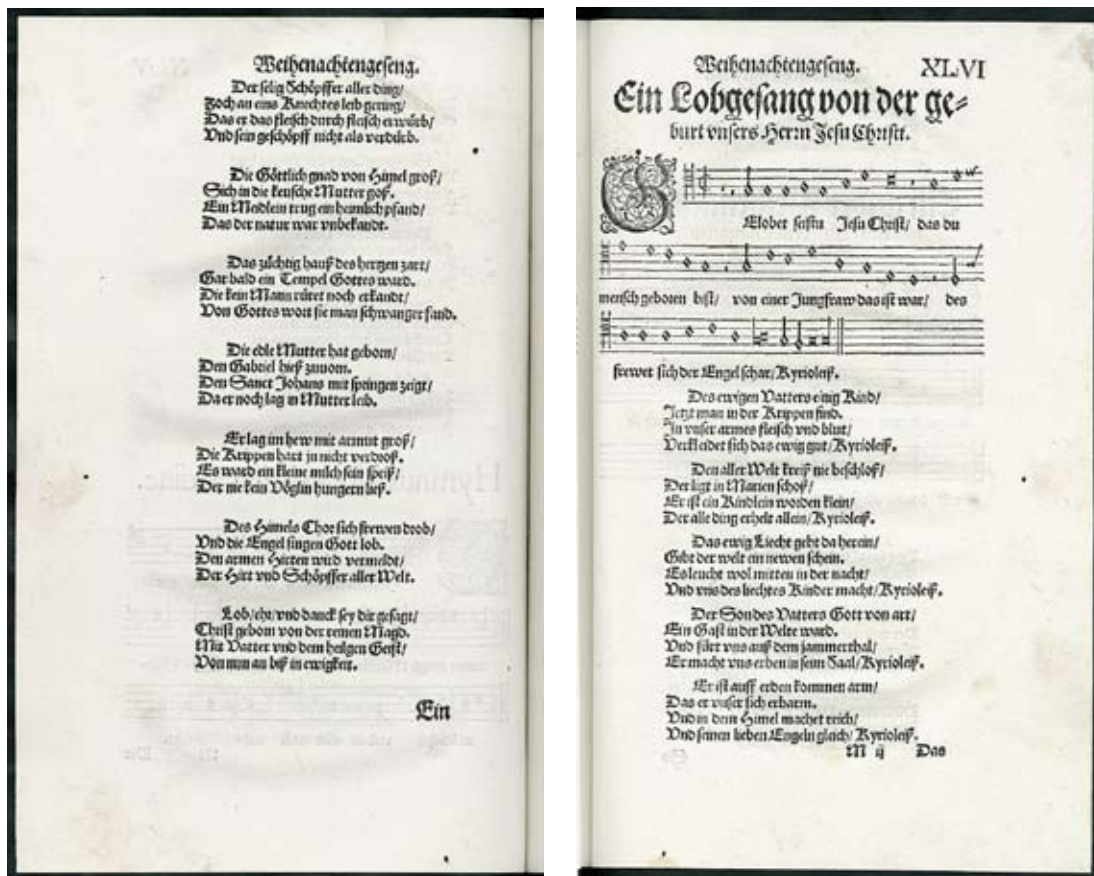 Weihenachtengeseng.
Der selig Schöpffer aller ding/
Zoch an eins Knechtes leib gering/
Das er das fleisch durch fleisch erwürb/
Vnd sein geschöpff nicht als verdürb.
Die Göttlich gnad von Himel groß/
Sich in die keusche Mutter goß.
Ein Meidlein trug ein heimlich pfand/
Das der natur war vnbekandt.
Das züchtig hauß des hertzen zart/
Gar bald ein Tempel Gottes ward.
Die kein Mann rüret noch erkandt/
Von Gottes wort sie man schwanger fand.
Die edle Mutter hat geborn/
Den Gabriel hieß zuuorn.
Den Sanct Johans mit springen zeigt/
Da er noch lag in Mutter leib.
Er lag im hew mit armut groß/
Die Krippen hart jn nicht verdroß.
Es ward ein kleine milch sein speiß/
Der nie kein Vöglin hungern ließ.
Des Himels Chor sich frewen drob/
Vnd die Engel singen Gott lob.
Den armen Hirten wird vermeldt/
Der Hirt vnd Schöpffer aller Welt.
Lob/ehr/vnd danck sey dir gesagt/
Christ geborn von der reinen Magd.
Mit Vatter vnd dem heilgen Geist/
Von nun an biß in ewigkeit.
Ein
Weihenachtengeseng. XLVI
Ein Lobgesang von der ge-
burt vnsers Herrn Jesu Christi.
GElobet seistu Jesu Christ/ das du
mensch geboren bist/ von einer Jungfraw das ist war/ des
frewet sich der Engel schar/Kyrioleiß.
Des ewigen Vatters einig Kind/
Jetzt man in der Krippen find.
In vnser armes fleisch vnd blut/
Verkleidet sich das ewig gut/Kyrioleiß.
Den aller Welt kreiß nie beschloß/
Der ligt in Marien schoß/
Er ist ein Kindlein worden klein/
Der alle ding erhelt allein/Kyrioleiß.
Das ewig Liecht geht da herein/
Gibt der welt ein newen schein.
Es leucht wol mitten in der nacht/
Vnd vns des liechtes Kinder macht/Kyrioleiß.
Der Son des Vatters Gott von art/
Ein Gast in der Welte ward.
Vnd fürt vns auß dem jammerthal/
Er macht vns erben in seim Saal/Kyrioleiß.
Er ist auff erden kommen arm/
Das er vnser sich erbarm.
Vnd in dem Himel machet reich/
Vnd seinen lieben Engeln gleich/Kyrioleiß.
M ij Das